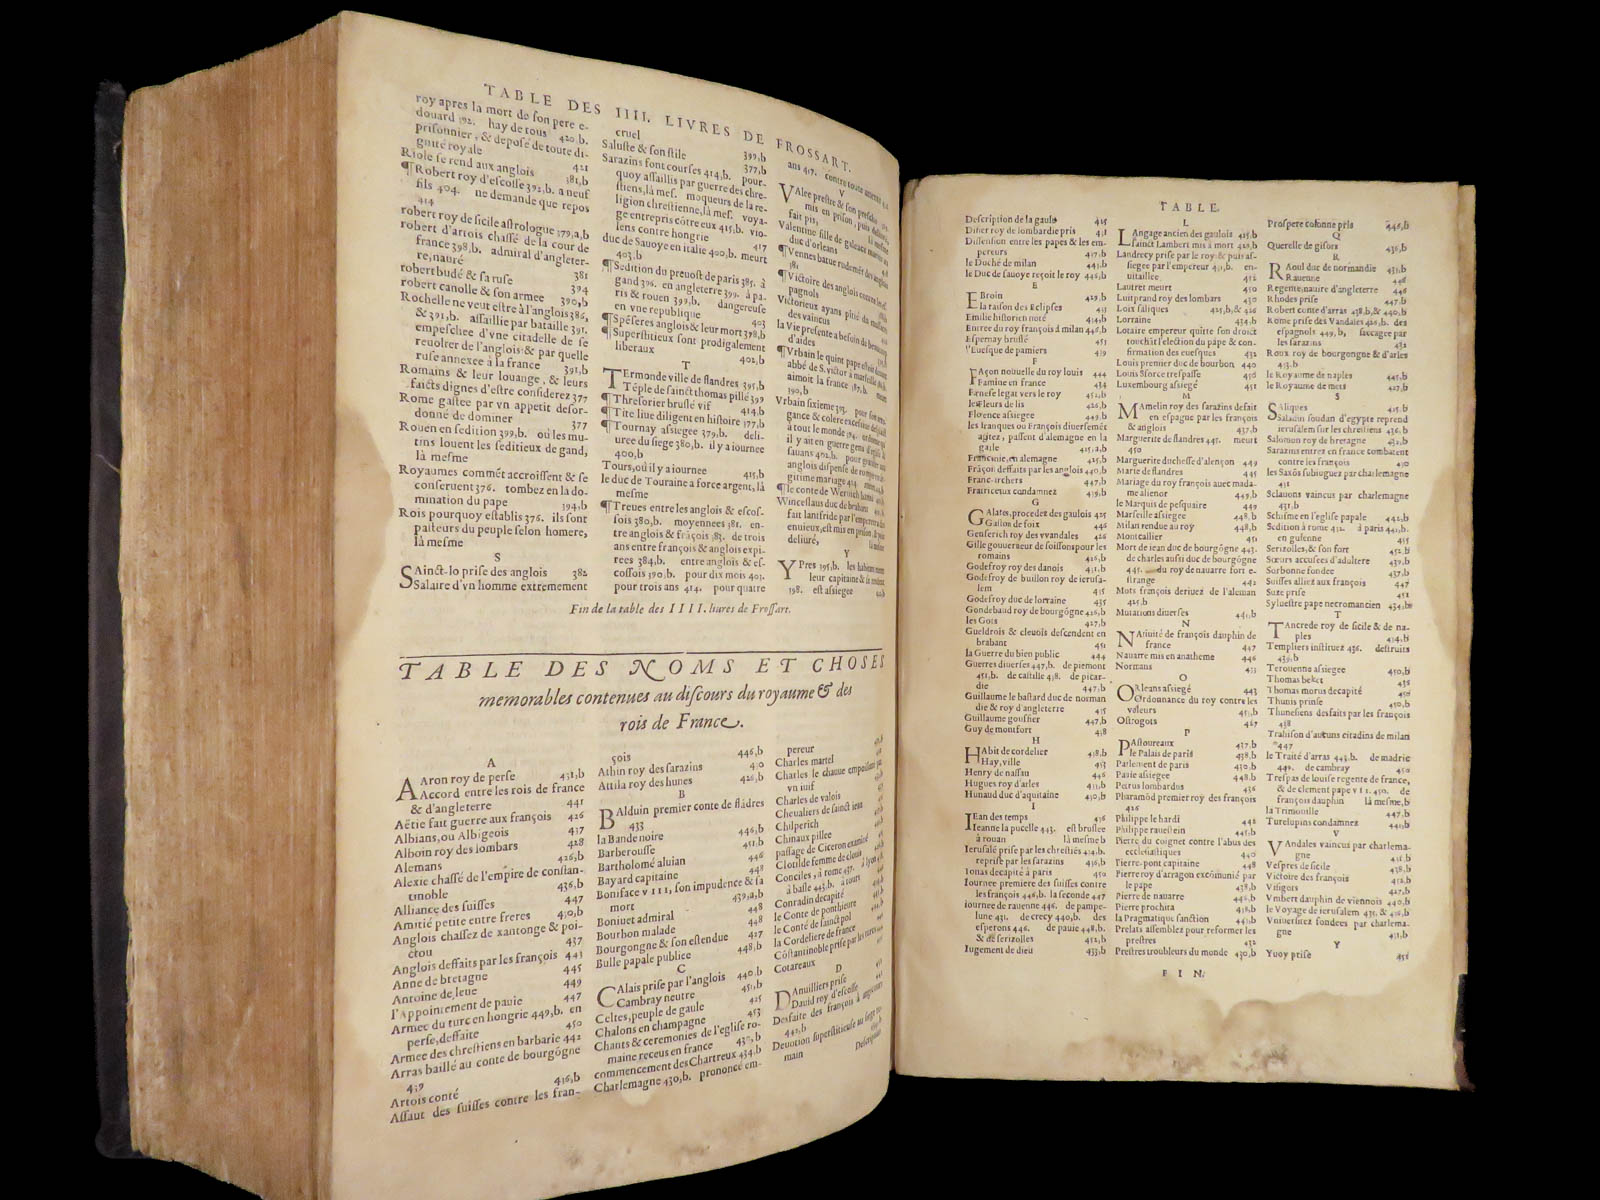 TABLE DES IIII. LIVRES DE FROSSART.
roy apres la mort de ſon pere e-
douard 392. hay de tous 420,b.
priſonnier, & depoſé de toute di-
gnité royale 421
Riole ſe rend aux anglois 381,b
¶Robert roy d'eſcoſſe 392,b. a neuf
fils 404. ne demande que repos
414
robert roy de ſicile aſtrologue 379,a,b
robert d'artois chaſſé de la cour de
france 398,b. admiral d'angleter-
re, nauré 381
robert budé & ſa ruſe 394
robert canolle & ſon armee 390,b
Rochelle ne veut eſtre à l'anglois 386,
& 391,b. aſſaillie par bataille 391.
empeſchee d'vne citadelle de ſe
reuolter de l'anglois & par quelle
ruſe annexee à la france 391,b
Romains & leur louange, & leurs
faicts dignes d'eſtre conſiderez 377
Rome gaſtee par vn appetit deſor-
donné de dominer 377
Rouen en ſedition 399,b. où les mu-
tins louent les ſeditieux de gand,
là meſme
Royaumes commēt accroiſſent & ſe
conſeruent 376. tombez en la do-
mination du pape 394,b
Rois pourquoy eſtablis 376. ils ſont
paſteurs du peuple ſelon homere,
là meſme
S
SAinct-lo priſe des anglois 382
Salaire d'vn homme extremement
cruel 399,b
Saluſte & ſon ſtile 377,b
Sarazins font courſes 414,b. pour-
quoy aſſaillis par guerre des chre-
ſtiens, là meſ. moqueurs de la re-
ligion chreſtienne, là meſ. voya-
ge entrepris cōtre eux 415,b. vio-
lens contre hongrie 417
duc de Sauoye en italie 400,b. meurt
403,b
¶Sedition du preuoſt de paris 385. à
gand 396. en angleterre 399. à pa-
ris & rouen 399,b. dangereuſe
en vne republique 403
¶Spēſeres anglois & leur mort 378,b
¶Superſtitieux ſont prodigalement
liberaux 402,b
T
TErmonde ville de flandres 395,b
Tēple de ſainct thomas pillé 399
¶Threſorier bruſlé vif 414,b
¶Tite liue diligent en hiſtoire 377,b
¶Tournay aſſiegee 379,b. deli-
uree du ſiege 380,b. il y a iournee
400,b
Tours, où il y a iournee 415,b
le duc de Touraine a force argent, là
meſme
¶Treues entre les anglois & eſcoſ-
ſois 380,b. moyennees 381. en-
tre anglois & frāçois 383. de trois
ans entre françois & anglois expi-
rees 384,b. entre anglois & eſ-
coſſois 390,b. pour dix mois 403.
pour trois ans 414. pour quatre
ans 417. contre toute
V
VAlee preſtre & ſon preſche
mis en priſon, puis deliuré,
fait pis, là meſme
Valentine fille de galeace
duc d'orleans
¶Vennes batue rudemēt des anglois
381
¶Victoire des anglois contre les eſ-
pagnols
Victorieux ayans pitié
des vaincus
la Vie preſente a beſoin de beaucoup
d'aides
¶Vrbain le quint pape
abbé de S. victor à marſeille
aimoit la france 387,b. meurt
390,b
Vrbain ſixieme 393. pour ſon arro-
gance & colere
à tout le monde 394.
il y ait en guerre gens
ſauans 402,b. pour
anglois diſpenſe de rompre
gitime mariage 414.
¶le conte de Werwich banni
Winceſlaus duc de brabant
fait lantfride par l'empereur
enuieux, eſt mis en priſon,
deliuré, là meſme
Y
YPres 395,b. les habitans
leur capitaine & ſe rendent
398. eſt aſſiegee
Fin de la table des IIII. liures de Froſſart.
TABLE DES NOMS ET CHOSES
memorables contenues au diſcours du royaume & des
rois de France.
A
AAron roy de perſe 431,b
Accord entre les rois de france
& d'angleterre 441
Aëtie fait guerre aux françois 426
Albians, ou Albigeois 437
Alboin roy des lombars 428
Alemans 426,b
Alexie chaſſé de l'empire de conſtan-
tinoble 436,b
Alliance des ſuiſſes 447
Amitié petite entre freres 430,b
Anglois chaſſez de xantonge & poi-
ctou 437
Anglois deffaits par les françois 443
Anne de bretagne 445
Antoine de leue 449
l'Appointement de pauie 447
Armee du turc en hongrie 449,b. en
perſe, deffaite 450
Armee des chreſtiens en barbarie 442
Arras baillé au conte de bourgōgne
439
Artois conté 436,b
Aſſaut des ſuiſſes contre les fran-
çois 446,b
Athin roy des ſarazins 430
Attila roy des hunes 426,b
B
BAlduin premier conte de flādres
433
la Bande noire 446,b
Barberouſſe 451,b
Bartholomé aluian 446
Bayard capitaine 448
Boniface VIII, ſon impudence & ſa
mort 439,a,b
Boniuet admiral 448
Bourbon malade 448
Bourgongne & ſon eſtendue 427
Bulle papale publice 448,b
C
CAlais priſe par l'anglois 440,b
Cambray neutre 451,b
Celtes, peuple de gaule 425
Chalons en champagne 453
Chants & ceremonies de l'egliſe ro-
maine receus en france 430,b
commencement des Chartreux 434,b
Charlemagne 430,b. prononcé em-
pereur
Charles martel
Charles le chauue empoiſonné par
vn iuif
Charles de valois
Cheualiers de ſainct iean
Chilperich
Chinaux pillee
paſſage de Ciceron examiné
Clotilde femme de clouis
Conciles, à rome 437. à lyon
à baſle 443,b. à tours
Conradin decapité
le Conte de ponthieure
le Conté de ſainct pol
la Cordeliere de france
Cōſtantinoble priſe par les turcs
Cotareaux
D
DAnuilliers priſe
Dauid roy d'eſcoſſe
Desfaite des françois à
442,b
Deuotion ſuperſtitieuſe au ſiege ro-
main
Deſcription
TABLE.
Deſcription de la gaule 415
Didier roy de lombardie pris 431
Diſſenſion entre les papes & les em-
pereurs 437,b
le Duché de milan 443,b
le Duc de ſauoye reçoit le roy 446,b
E
EBroin 429,b
la raiſon des Eclipſes 451
Emilie hiſtorien noté 434,b
Entree du roy françois à milan 446,b
Eſpernay bruſlé 451
l'Eueſque de pamiers 439
F
FAçon nouuelle du roy louis 444
Famine en france 434
Farneſe legat vers le roy 452,b
les Fleurs de lis 426,b
Florence aſſiegee 449,b
les Franques ou François diuerſemēt
agitez, paſſent d'alemagne en la
gaule 425,a,b
Franconie, en alemagne 425,b
Frāçois deffaits par les anglois 440,b
Franc-archers 447,b
Fratriceux condamnez 439,b
G
GAlates, procedez des gaulois 425
Gaſton de foix 446
Genſerich roy des vvandales 426
Gille gouuerneur de ſoiſſons pour les
romains 426,b
Godefroy roy des danois 431,b
Godefroy de buillon roy de ieruſa-
lem 435
Godefroy duc de lorraine 435
Gondebaud roy de bourgōgne 426,b
les Gots 427,b
Gueldrois & cleuois deſcendent en
brabant 451
la Guerre du bien public 444
Guerres diuerſes 447,b. de piemont
451,b. de caſtille 438. de picar-
die 447,b
Guillaume le baſtard duc de norman
die & roy d'angleterre 435
Guillaume gouffier 447,b
Guy de montfort 438
H
HAbit de cordelier 438,b
Hay, ville 453
Henry de naſſau 446
Hugues roy d'arles 433,b
Hunaud duc d'aquitaine 430,b
I
IEan des temps 436
Ieanne la pucelle 443. eſt bruſlee
à rouan là meſme b
Ieruſalē priſe par les chreſtiēs 434,b.
repriſe par les ſarazins 436,b
Ionas decapité à paris 450
Iournee premiere des ſuiſſes contre
les françois 446,b. la ſeconde 447
iournee de rauenne 446. de pampe-
lune 431. de crecy 440,b. des
eſperons 446. de pauie 448,b.
& de ſerizolles 452,b
Iugement de dieu 433,b
L
LAngage ancien des gaulois 425,b
ſainct Lambert mis à mort 428,b
Landrecy priſe par le roy & puis aſ-
ſiegee par l'empereur 451,b. en-
uitaillee 452
Lautrec meurt 450
Luitprand roy des lombars 430
Loix ſaliques 425,b, & 426
Lorraine 434,b
Lotaire empereur quitte ſon droict
touchāt l'election du pape & con-
firmation des eueſques 432
Louis premier duc de bourbon 440
Louis Sforce treſpaſſe 450
Luxembourg aſſiegé 451
M
MAmelin roy des ſarazins defait
en eſpagne par les françois
& anglois 437,b
Marguerite de flandres 441. meurt
450
Marguerite ducheſſe d'alençon 449
Marie de flandres 445
Mariage du roy françois auec mada-
me alienor 449,b
le Marquis de peſquaire 449
Marſeille aſſiegee 448,b
Milan rendue au roy 448,b
Montcallier 451
Mort de iean duc de bourgōgne 443.
de charles auſſi duc de bourgogne
445. du roy de nauarre fort e-
ſtrange 442
Mots françois deriuez de l'aleman
425,b
Mutations diuerſes 441,b
N
NAtiuité de françois dauphin de
france 447
Nauarre mis en anatheme 446
Normans 433
O
ORleans aſſiegé 443
Ordonnance du roy contre les
voleurs 453,b
Oſtrogots 427
P
PAſtoureaux 437,b
le Palais de paris 438,b
Parlement de paris 430,b
Pauie aſſiegee 448,b
Petrus lombardus 436
Pharamōd premier roy des françois
426
Philippe le hardi 442
Philippe raueſtein 445,b
Pierre du coignet contre l'abus des
eccleſiaſtiques 440
Pierre-pont capitaine 448
Pierre roy d'arragon excōmunié par
le pape 438,b
Pierre de nauarre 446,b
Pierre prochita 438,b
la Pragmatique ſanction 443,b
Prelats aſſemblez pour reformer les
preſtres 432
Preſtres troubleurs du monde 430,b
Proſpere colonne pris 446,b
Q
Querelle de giſors 436,b
R
RAoul duc de normandie 433,b
Rauenne 446
Regente, nauire d'angleterre 446
Rhodes priſe 447,b
Robert conte d'arras 438,b, & 440,b
Rome priſe des Vandales 426,b. des
eſpagnols 449,b, ſaccagee par
les ſarazins 432
Roux roy de bourgongne & d'arles
433,b
le Royaume de naples 445,b
le Royaume de mets 427,b
S
SAliques 425,b
Saladin ſoudan d'egypte reprend
ieruſalem ſur les chreſtiens 436,b
Salomon roy de bretagne 432,b
Sarazins entrez en france combatent
contre les françois 430
les Saxōs ſubiuguez par charlemagne
431
Sclauons vaincus par charlemagne
431,b
Schiſme en l'egliſe papale 442,b
Sedition à rome 432. à paris 441,b.
en guienne 453
Serizolles, & ſon fort 452,b
Sœurs accuſees d'adultere 439,b
Sorbonne fondee 437,b
Suiſſes alliez aux françois 447
Suze priſe 451
Sylueſtre pape necromancien 434,b
T
TAncrede roy de ſicile & de na-
ples 434,b
Templiers inſtituez 436. deſtruits
439,b
Terouenne aſſiegee 450,b
Thomas beket 436
Thomas morus decapité 450
Thunis priſe 450,b
Thuneſiens desfaits par les françois
438
Trahiſon d'aucuns citadins de milan
447
le Traité d'arras 443,b. de madric
449. de cambray 450
Treſpas de louiſe regente de france,
& de clement pape VII. 450. de
françois dauphin là meſme, b
la Trimouille 447,b
Turelupins condamnez 440,b
V
VAndales vaincus par charlema-
gne 431,b
Veſpres de ſicile 438,b
Victoire des françois 452,b
Viſigots 427,b
Vmbert dauphin de viennois 440,b
le Voyage de ieruſalem 435, & 436,b
Vniuerſitez fondees par charlema-
gne 431,b
Y
Yuoy priſe 451
FIN.